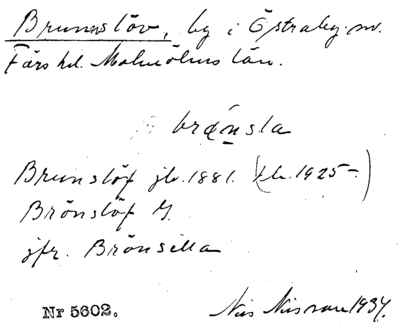 Brunnslöv, by i Östraby sn.
Färs hd. Malmöhus län.
brǿnsla
Brunslöf jb. 1881. (jb. 1925-)
Brönslöf G.
jfr. Brönsella
Nr 5602.
Nils Nilsson 1934.